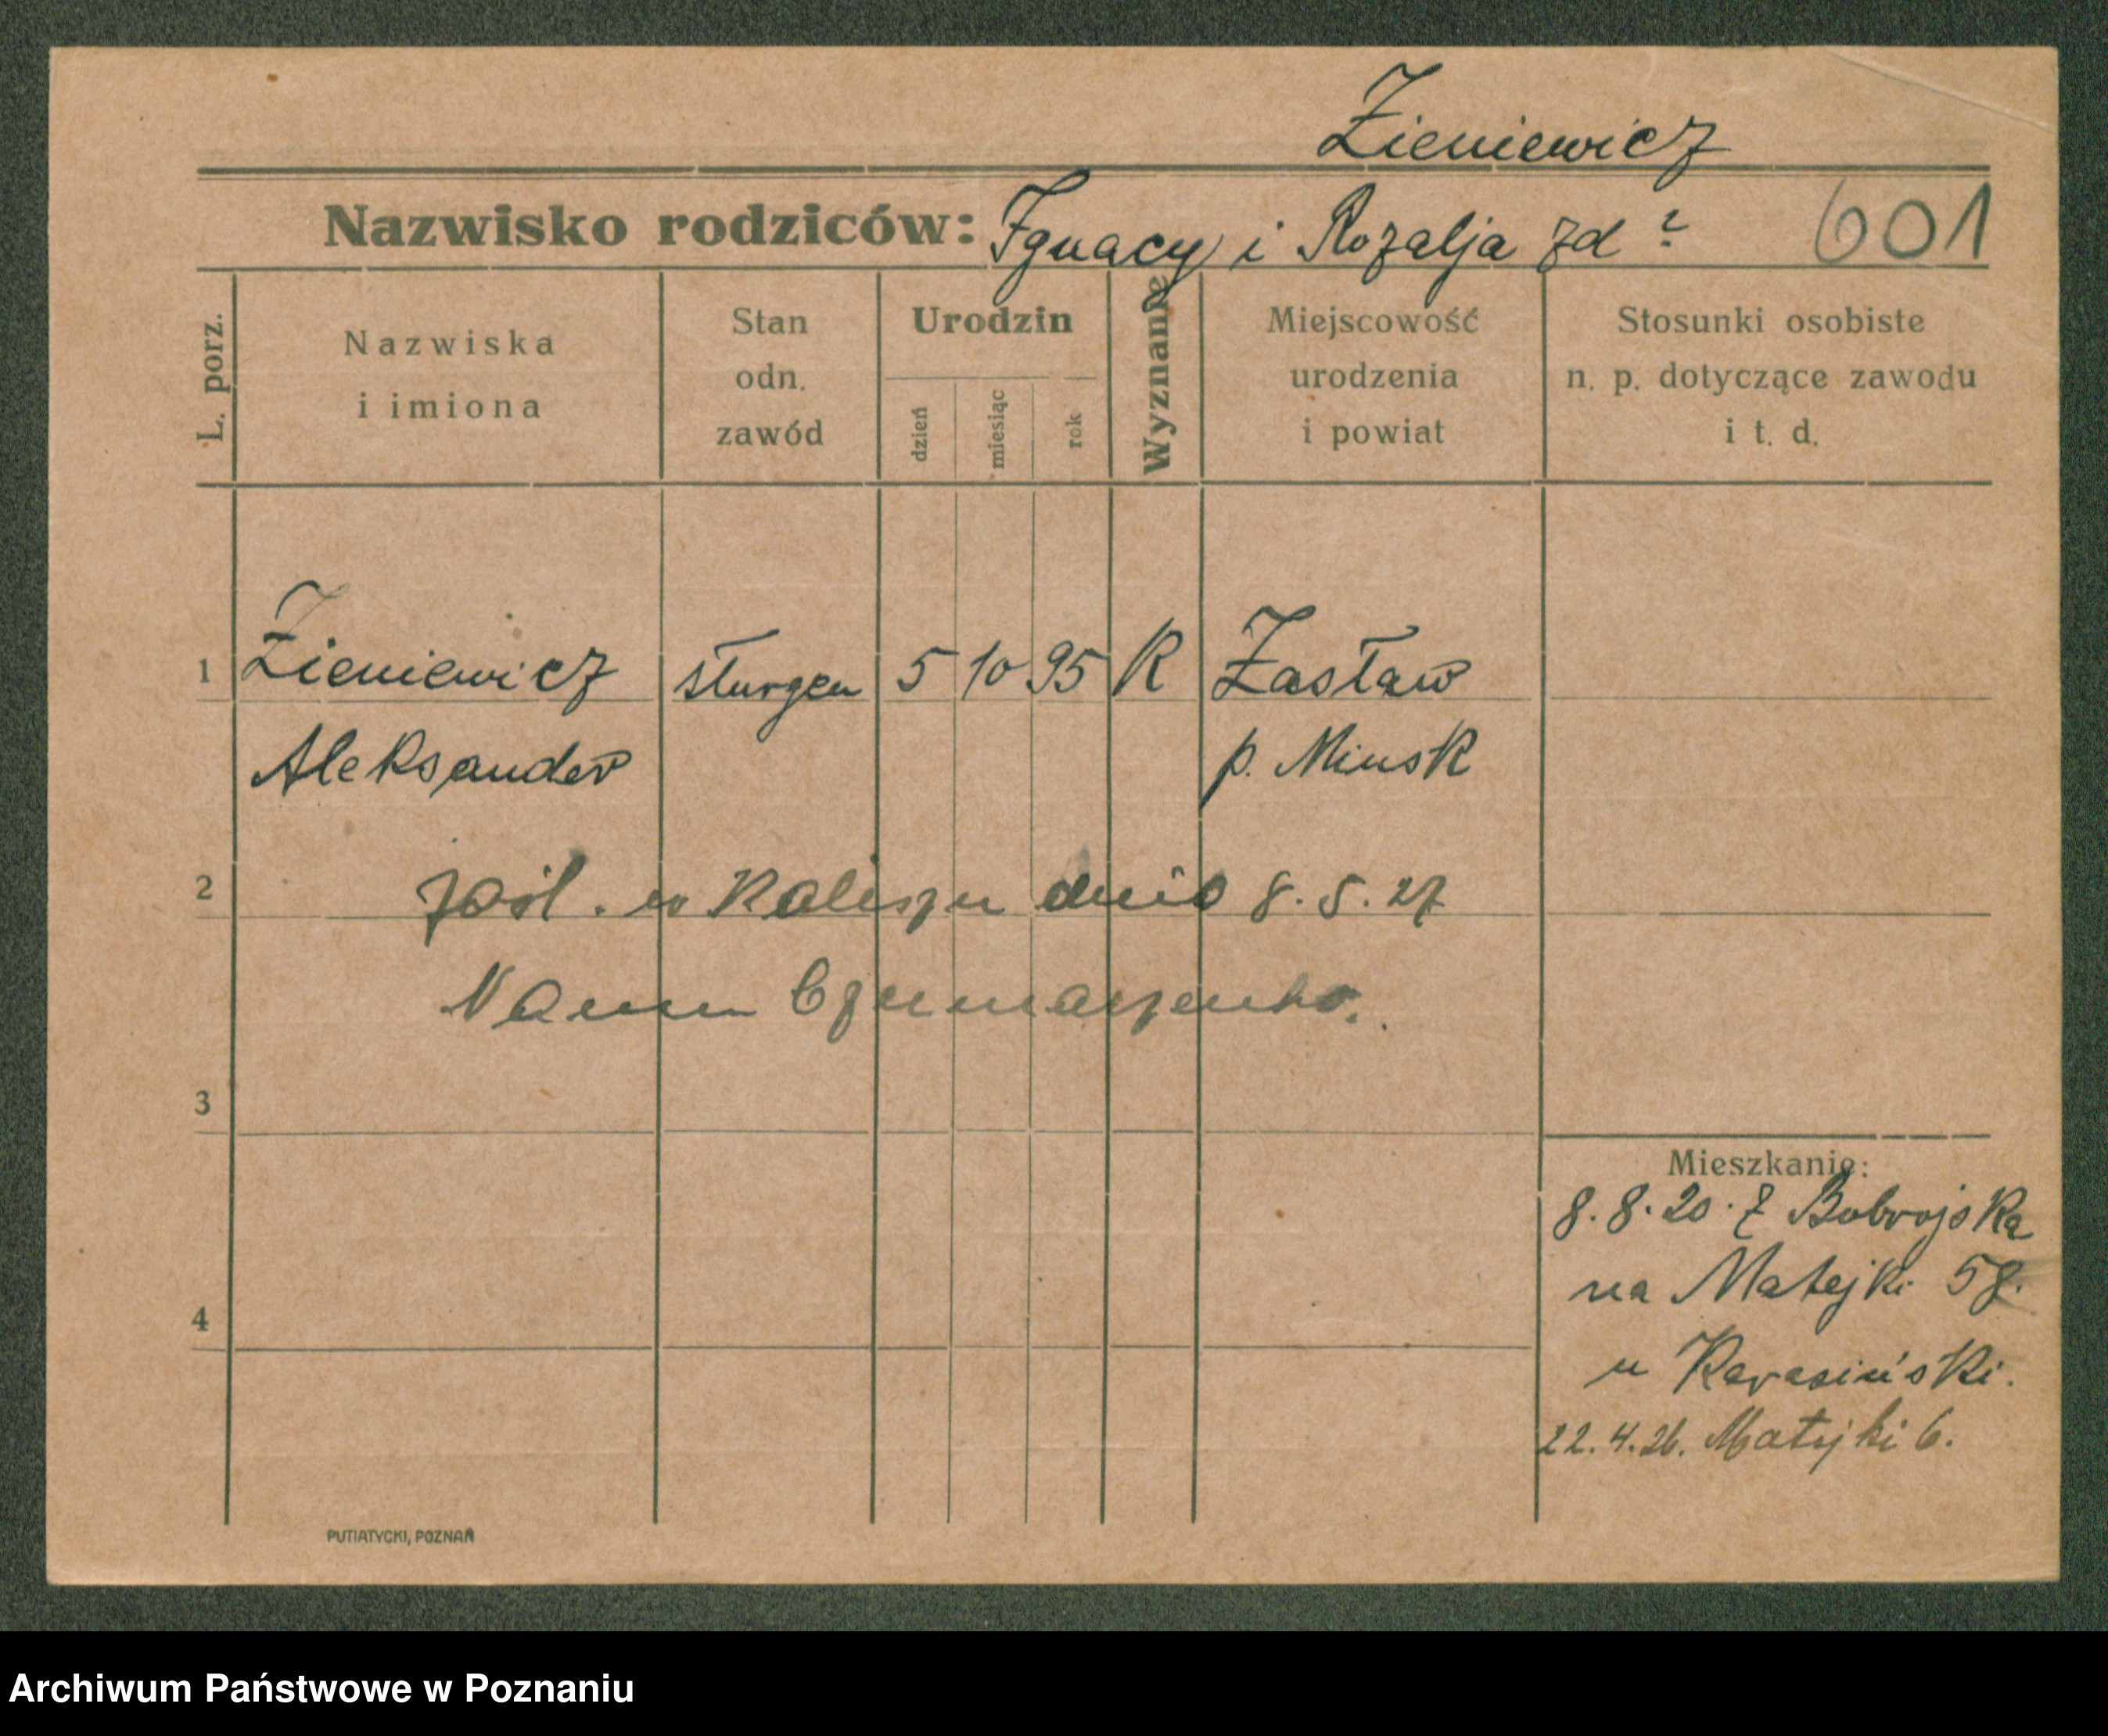 Zieniewicz
Nazwisko rodziców: Ignacy i Rozalja zd ? 601
L. porz.
Nazwiska i imiona
Stan odn. zawód
Urodzin
dzień miesiąc rok
Wyznanie
Miejscowość urodzenia i powiat
Stosunki osobiste n. p. dotyczące zawodu i t. d.
1 Zieniewicz 5 10 95 K Zasław
Aleksander p. Minsk
2 zaśl. w Kaliszu dnia 8.5.27
3
Mieszkanie:
8.8.20. Z Bobrojska
na Matejki 58.
4
u Karasiński.
22.4.26. Matejki 6.
PUTIATYCKI, POZNAŃ
Archiwum Państwowe w Poznaniu